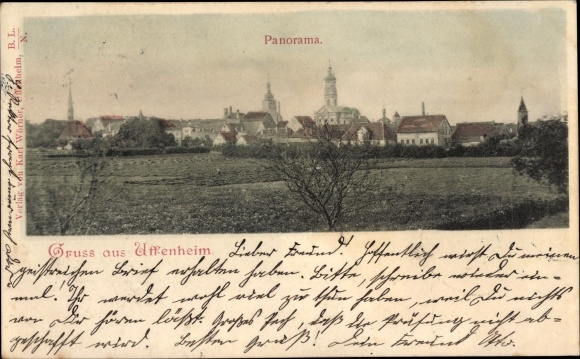 Panorama.
B. L.
N.
Verlag von Karl Wörner, Uffenheim,
Gruss aus Uffenheim.
Lieber Freund! Hoffentlich wirst Du meinen
geistreichen Brief erhalten haben. Bitte, schreibe wieder ein-
mal. Ihr werdet wohl viel zu thun haben, weil Du nichts
von Dir hören läßt. Großes Pech, daß die Prüfung nicht ab-
geschafft wird. Besten Gruß! Dein Freund Otto.